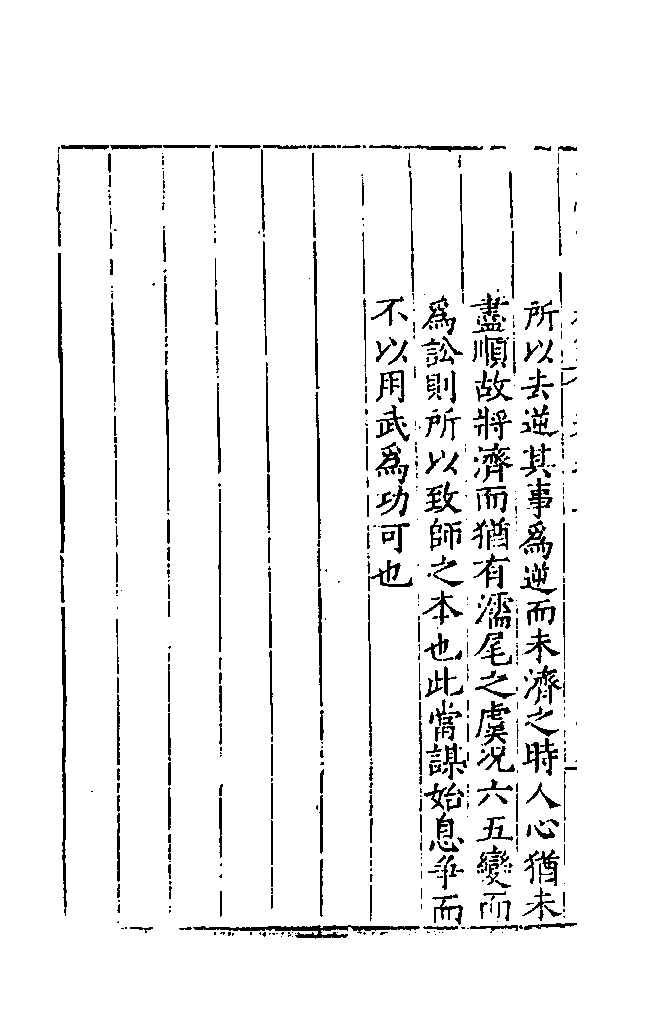 所以去逆其事爲逆而未濟之時人心猶未
盡順故將濟而猶有濡尾之虞况六五變而
爲訟則所以致師之本也此當謀始息爭而
不以用武爲功可也